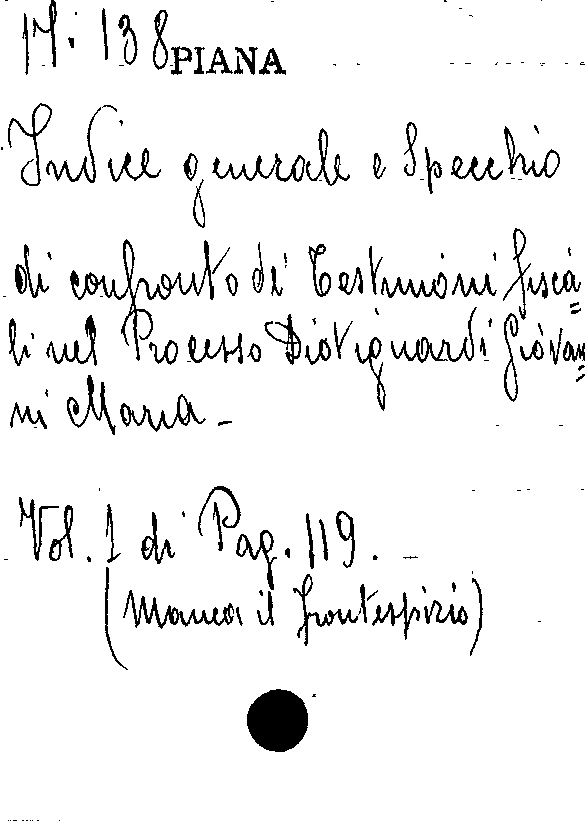 M. 138 PIANA
Indice generale e Specchio
di confronto de' Testimoni fisca=
li nel Processo Diotiguardi Giovan=
ni Maria.-
Vol. 1 di Pag. 119. -
(Manca il frontespizio)